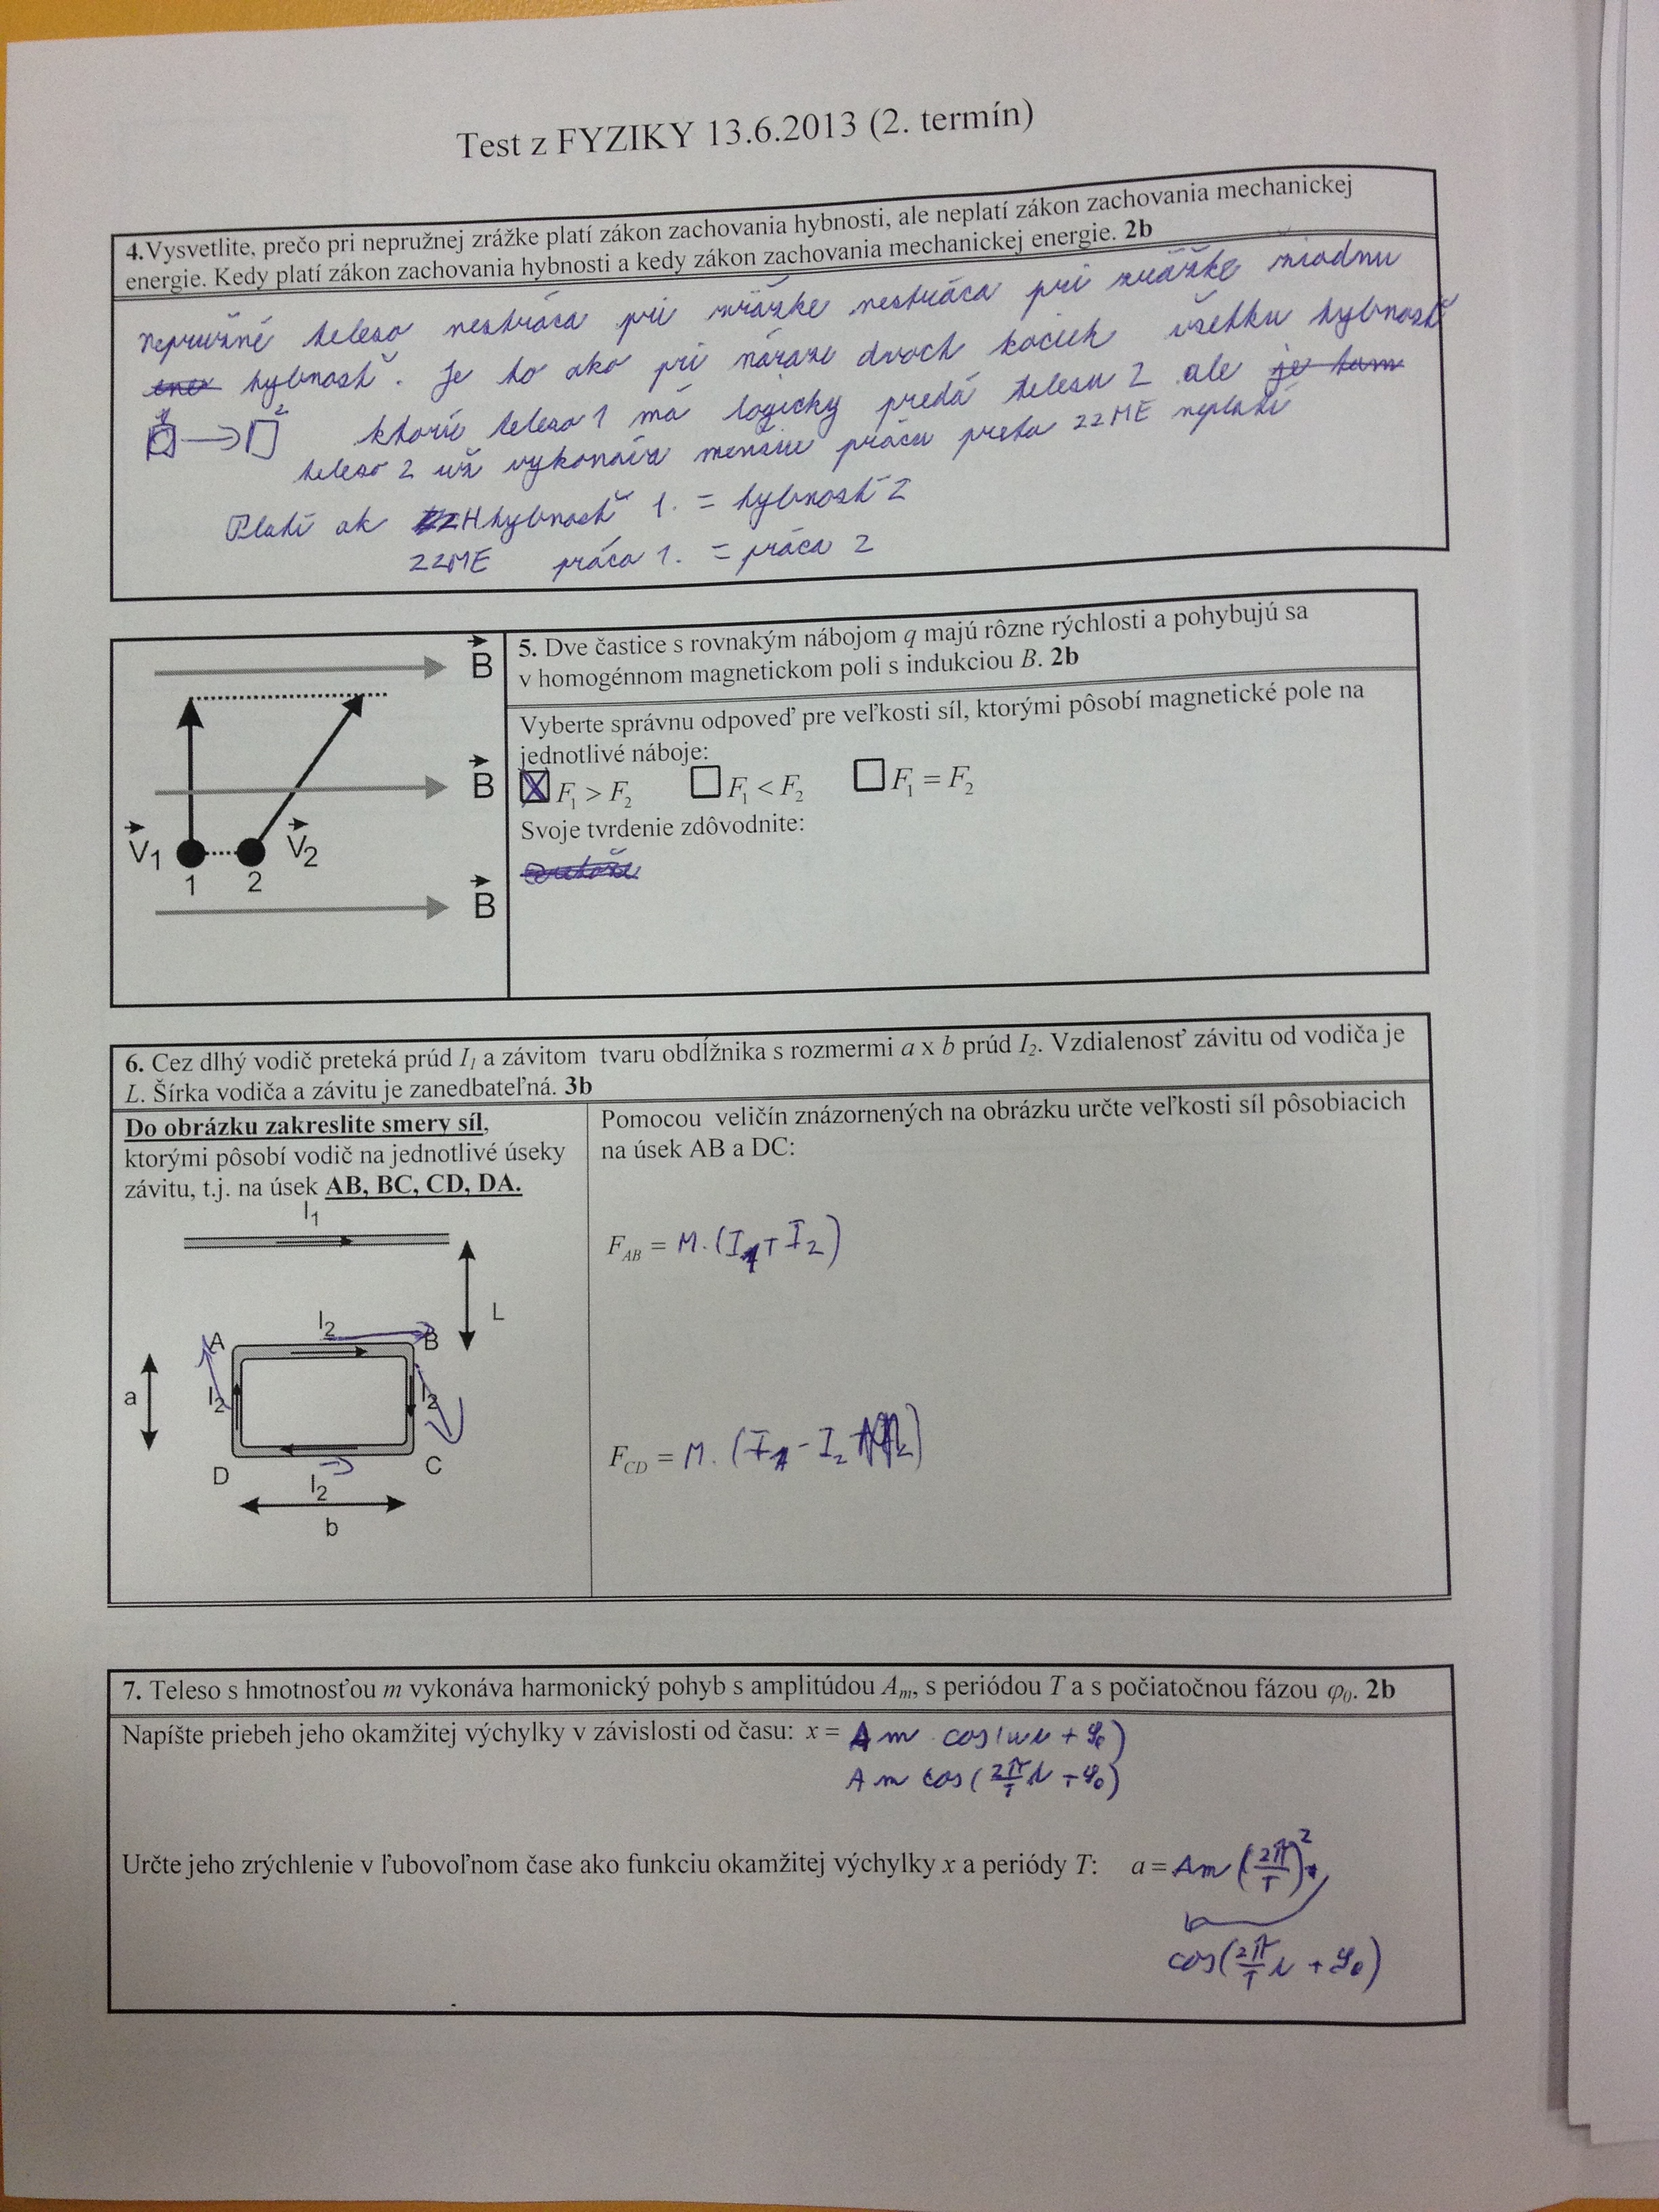 Test z FYZIKY 13.6.2013 (2. termín)
4.Vysvetlite, prečo pri nepružnej zrážke platí zákon zachovania hybnosti, ale neplatí zákon zachovania mechanickej
energie. Kedy platí zákon zachovania hybnosti a kedy zákon zachovania mechanickej energie. 2b
nepružné teleso nestráca pri zrážke nestráca pri zrážke žiadnu
hybnosť. Je to ako pri náraze dvoch kociek všetku hybnosť
1 2 ktorú teleso 1 má logicky predá telesu 2 ale je tam
teleso 2 už vykonáva menšiu prácu preto ZZME neplatí
Platí ak ZZH hybnosť 1. = hybnosti 2
ZZME práca 1. = práca 2
B
B
B
V1
V2
1 2
5. Dve častice s rovnakým nábojom q majú rôzne rýchlosti a pohybujú sa
v homogénnom magnetickom poli s indukciou B. 2b
Vyberte správnu odpoveď pre veľkosti síl, ktorými pôsobí magnetické pole na
jednotlivé náboje:
F1 > F2 F1 < F2 F1 = F2
Svoje tvrdenie zdôvodnite:
6. Cez dlhý vodič preteká prúd I1 a závitom tvaru obdĺžnika s rozmermi a x b prúd I2. Vzdialenosť závitu od vodiča je
L. Šírka vodiča a závitu je zanedbateľná. 3b
Do obrázku zakreslite smery síl,
ktorými pôsobí vodič na jednotlivé úseky
závitu, t.j. na úsek AB, BC, CD, DA.
I1
L
A I2 B
a I2 I2
D I2 C
b
Pomocou veličín znázornených na obrázku určte veľkosti síl pôsobiacich
na úsek AB a DC:
FAB = M. (I1 + I2)
FCD = M. (I1 - I2)
7. Teleso s hmotnosťou m vykonáva harmonický pohyb s amplitúdou Am, s periódou T a s počiatočnou fázou φ0. 2b
Napíšte priebeh jeho okamžitej výchylky v závislosti od času: x = Am cos(ωt + φ0)
Am cos(2π/T t + φ0)
Určte jeho zrýchlenie v ľubovoľnom čase ako funkciu okamžitej výchylky x a periódy T: a = Am (2π/T)²
cos(2π/T t + φ0)